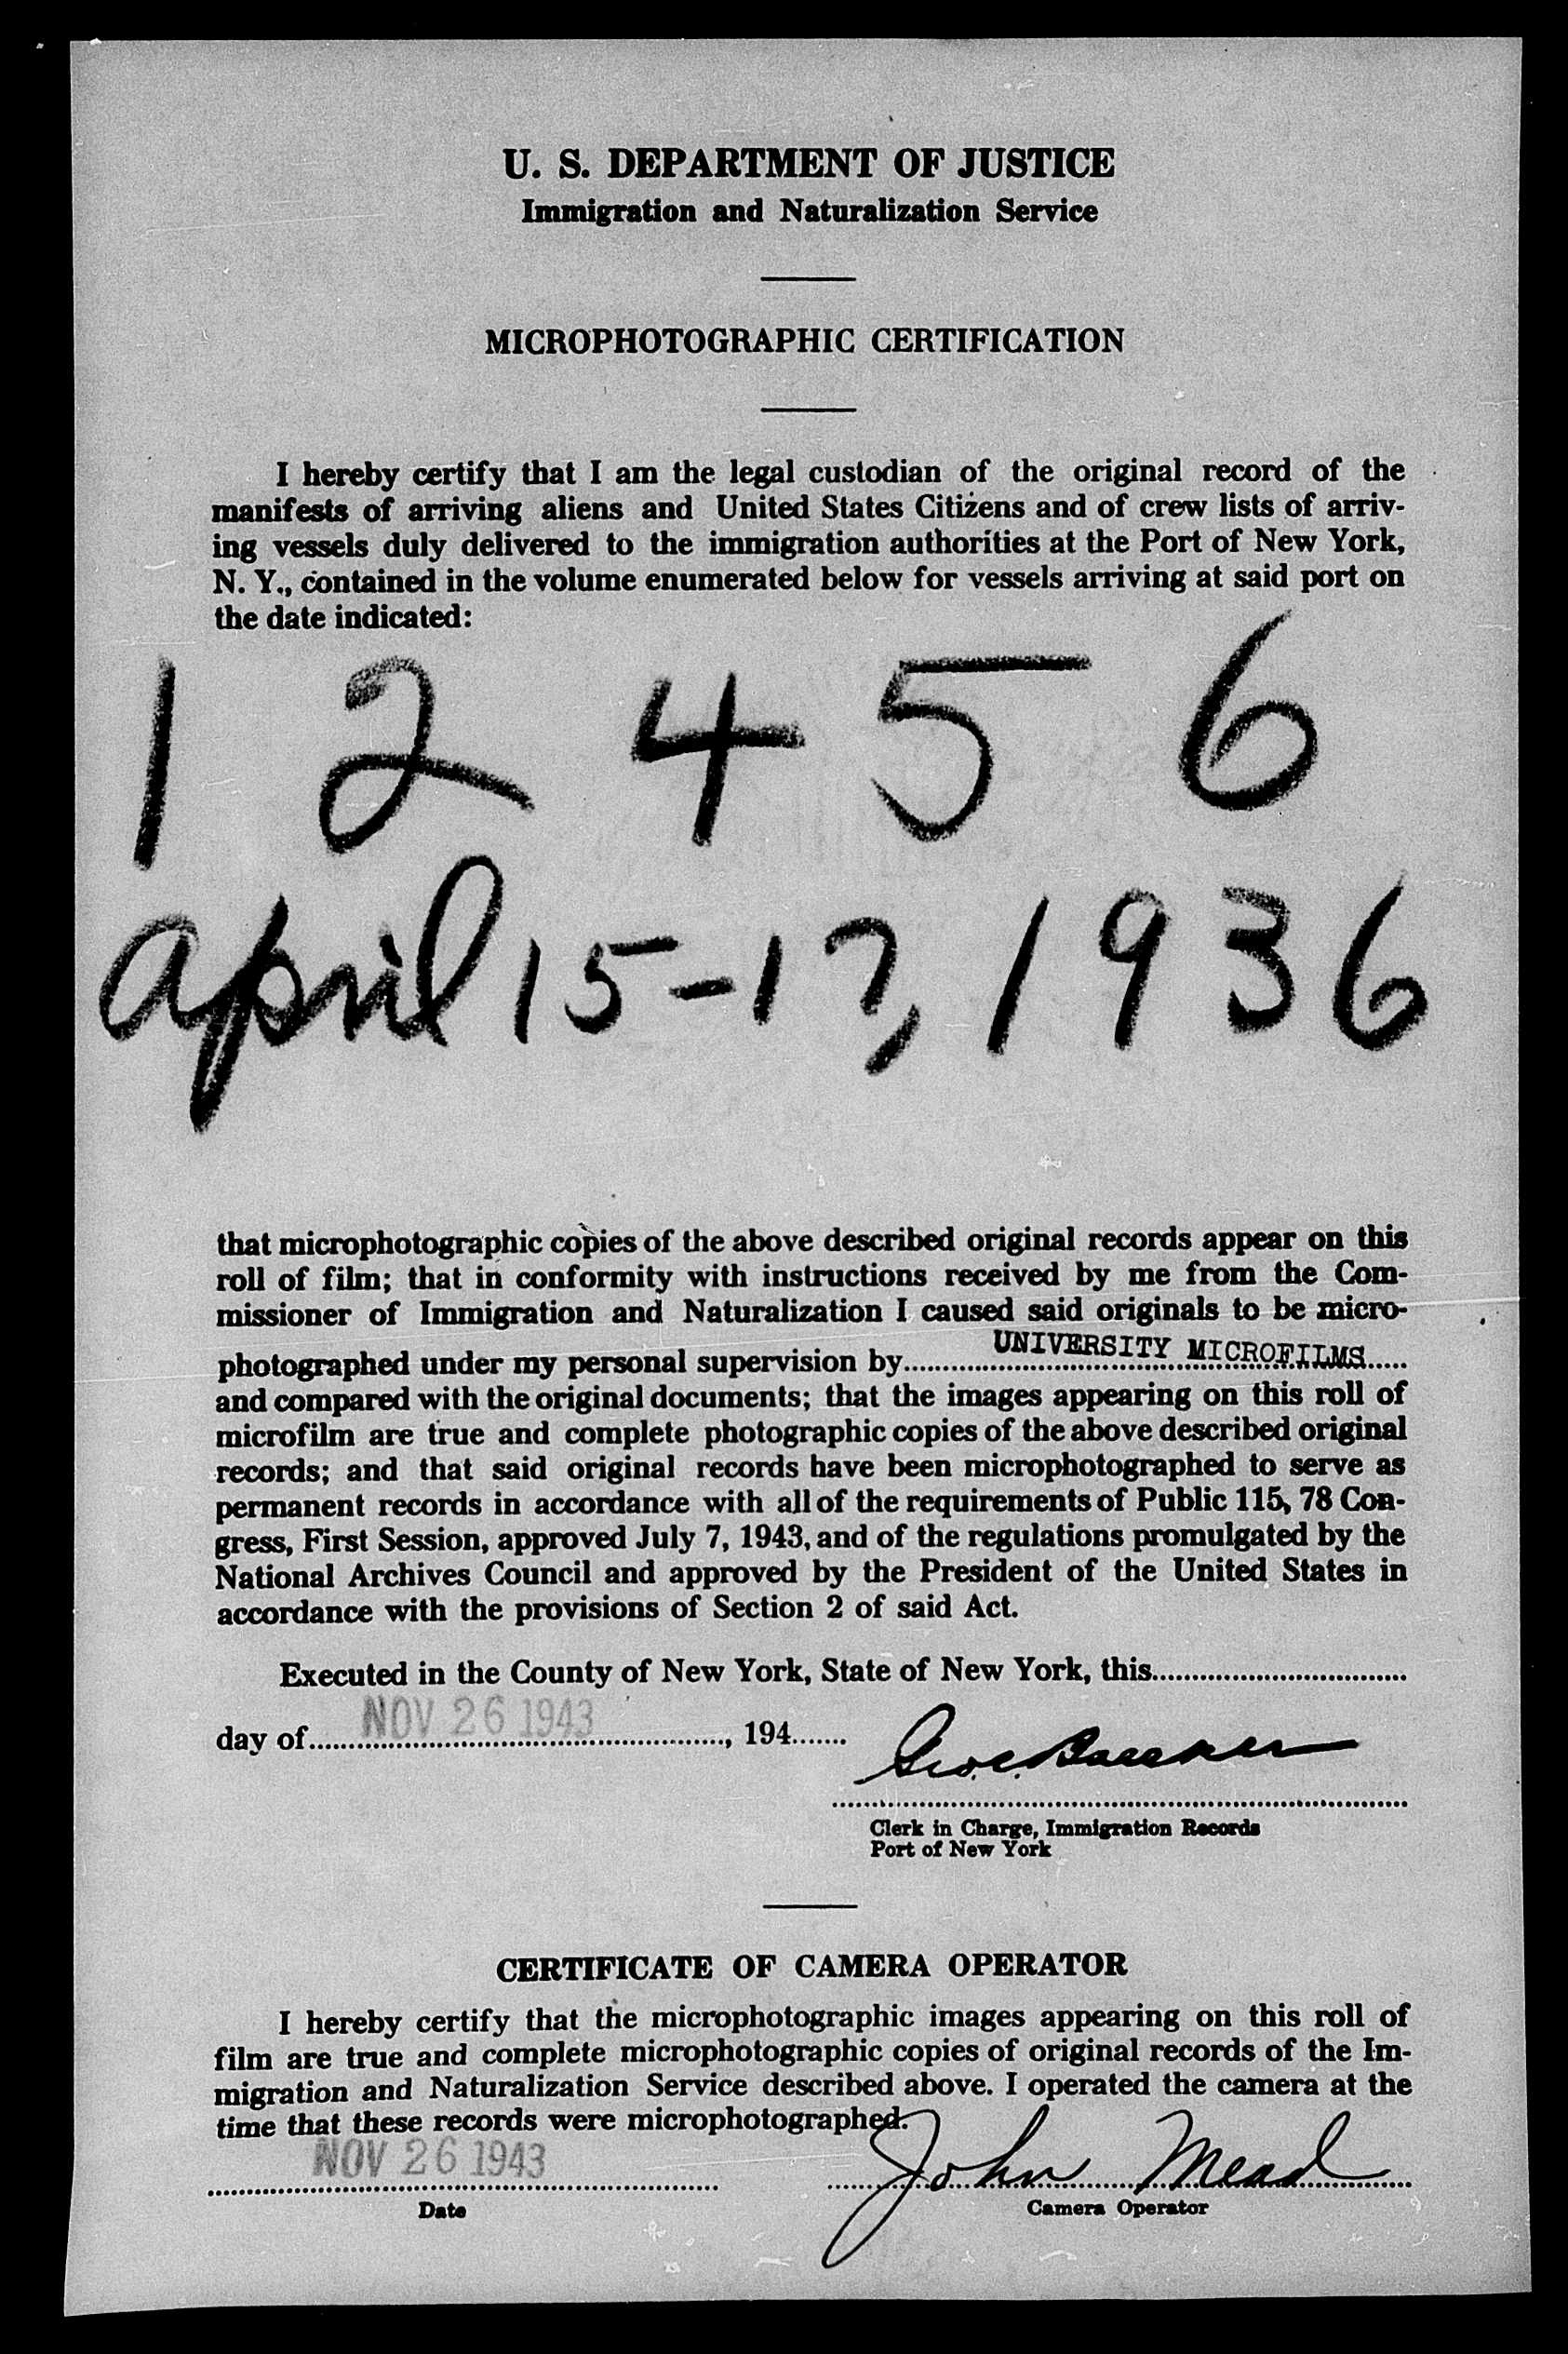 U. S. DEPARTMENT OF JUSTICE
Immigration and Naturalization Service
MICROPHOTOGRAPHIC CERTIFICATION
I hereby certify that I am the legal custodian of the original record of the
manifests of arriving aliens and United States Citizens and of crew lists of arriv-
ing vessels duly delivered to the immigration authorities at the Port of New York,
N. Y., contained in the volume enumerated below for vessels arriving at said port on
the date indicated:
1 2 4 5 6
april 15-17, 1936
that microphotographic copies of the above described original records appear on this
roll of film; that in conformity with instructions received by me from the Com-
missioner of Immigration and Naturalization I caused said originals to be micro-
photographed under my personal supervision by UNIVERSITY MICROFILMS
and compared with the original documents; that the images appearing on this roll of
microfilm are true and complete photographic copies of the above described original
records; and that said original records have been microphotographed to serve as
permanent records in accordance with all of the requirements of Public 115, 78 Con-
gress, First Session, approved July 7, 1943, and of the regulations promulgated by the
National Archives Council and approved by the President of the United States in
accordance with the provisions of Section 2 of said Act.
Executed in the County of New York, State of New York, this
day of NOV 26 1943, 194
Clerk in Charge, Immigration Records
Port of New York
CERTIFICATE OF CAMERA OPERATOR
I hereby certify that the microphotographic images appearing on this roll of
film are true and complete microphotographic copies of original records of the Im-
migration and Naturalization Service described above. I operated the camera at the
time that these records were microphotographed.
NOV 26 1943 John Mead
Date Camera Operator